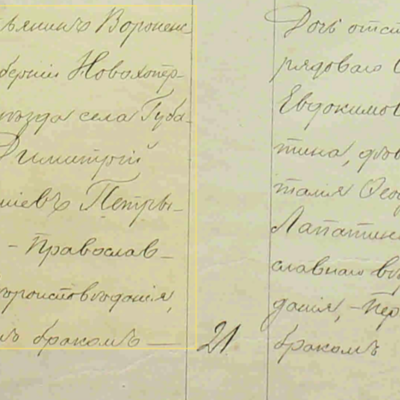 ьянинъ Воронеж
берніи Новохопер-
уѣзда села Губа-
Димитрій
иевъ Петры-
- Православ-
вѣроисповѣданія,
мъ бракомъ —
21.
Дочь отст
рядоваго
Евдокимов
тина, дѣв
талія Ѳео
Лапатин
славнаго вѣ
данія, - Пер
бракомъ